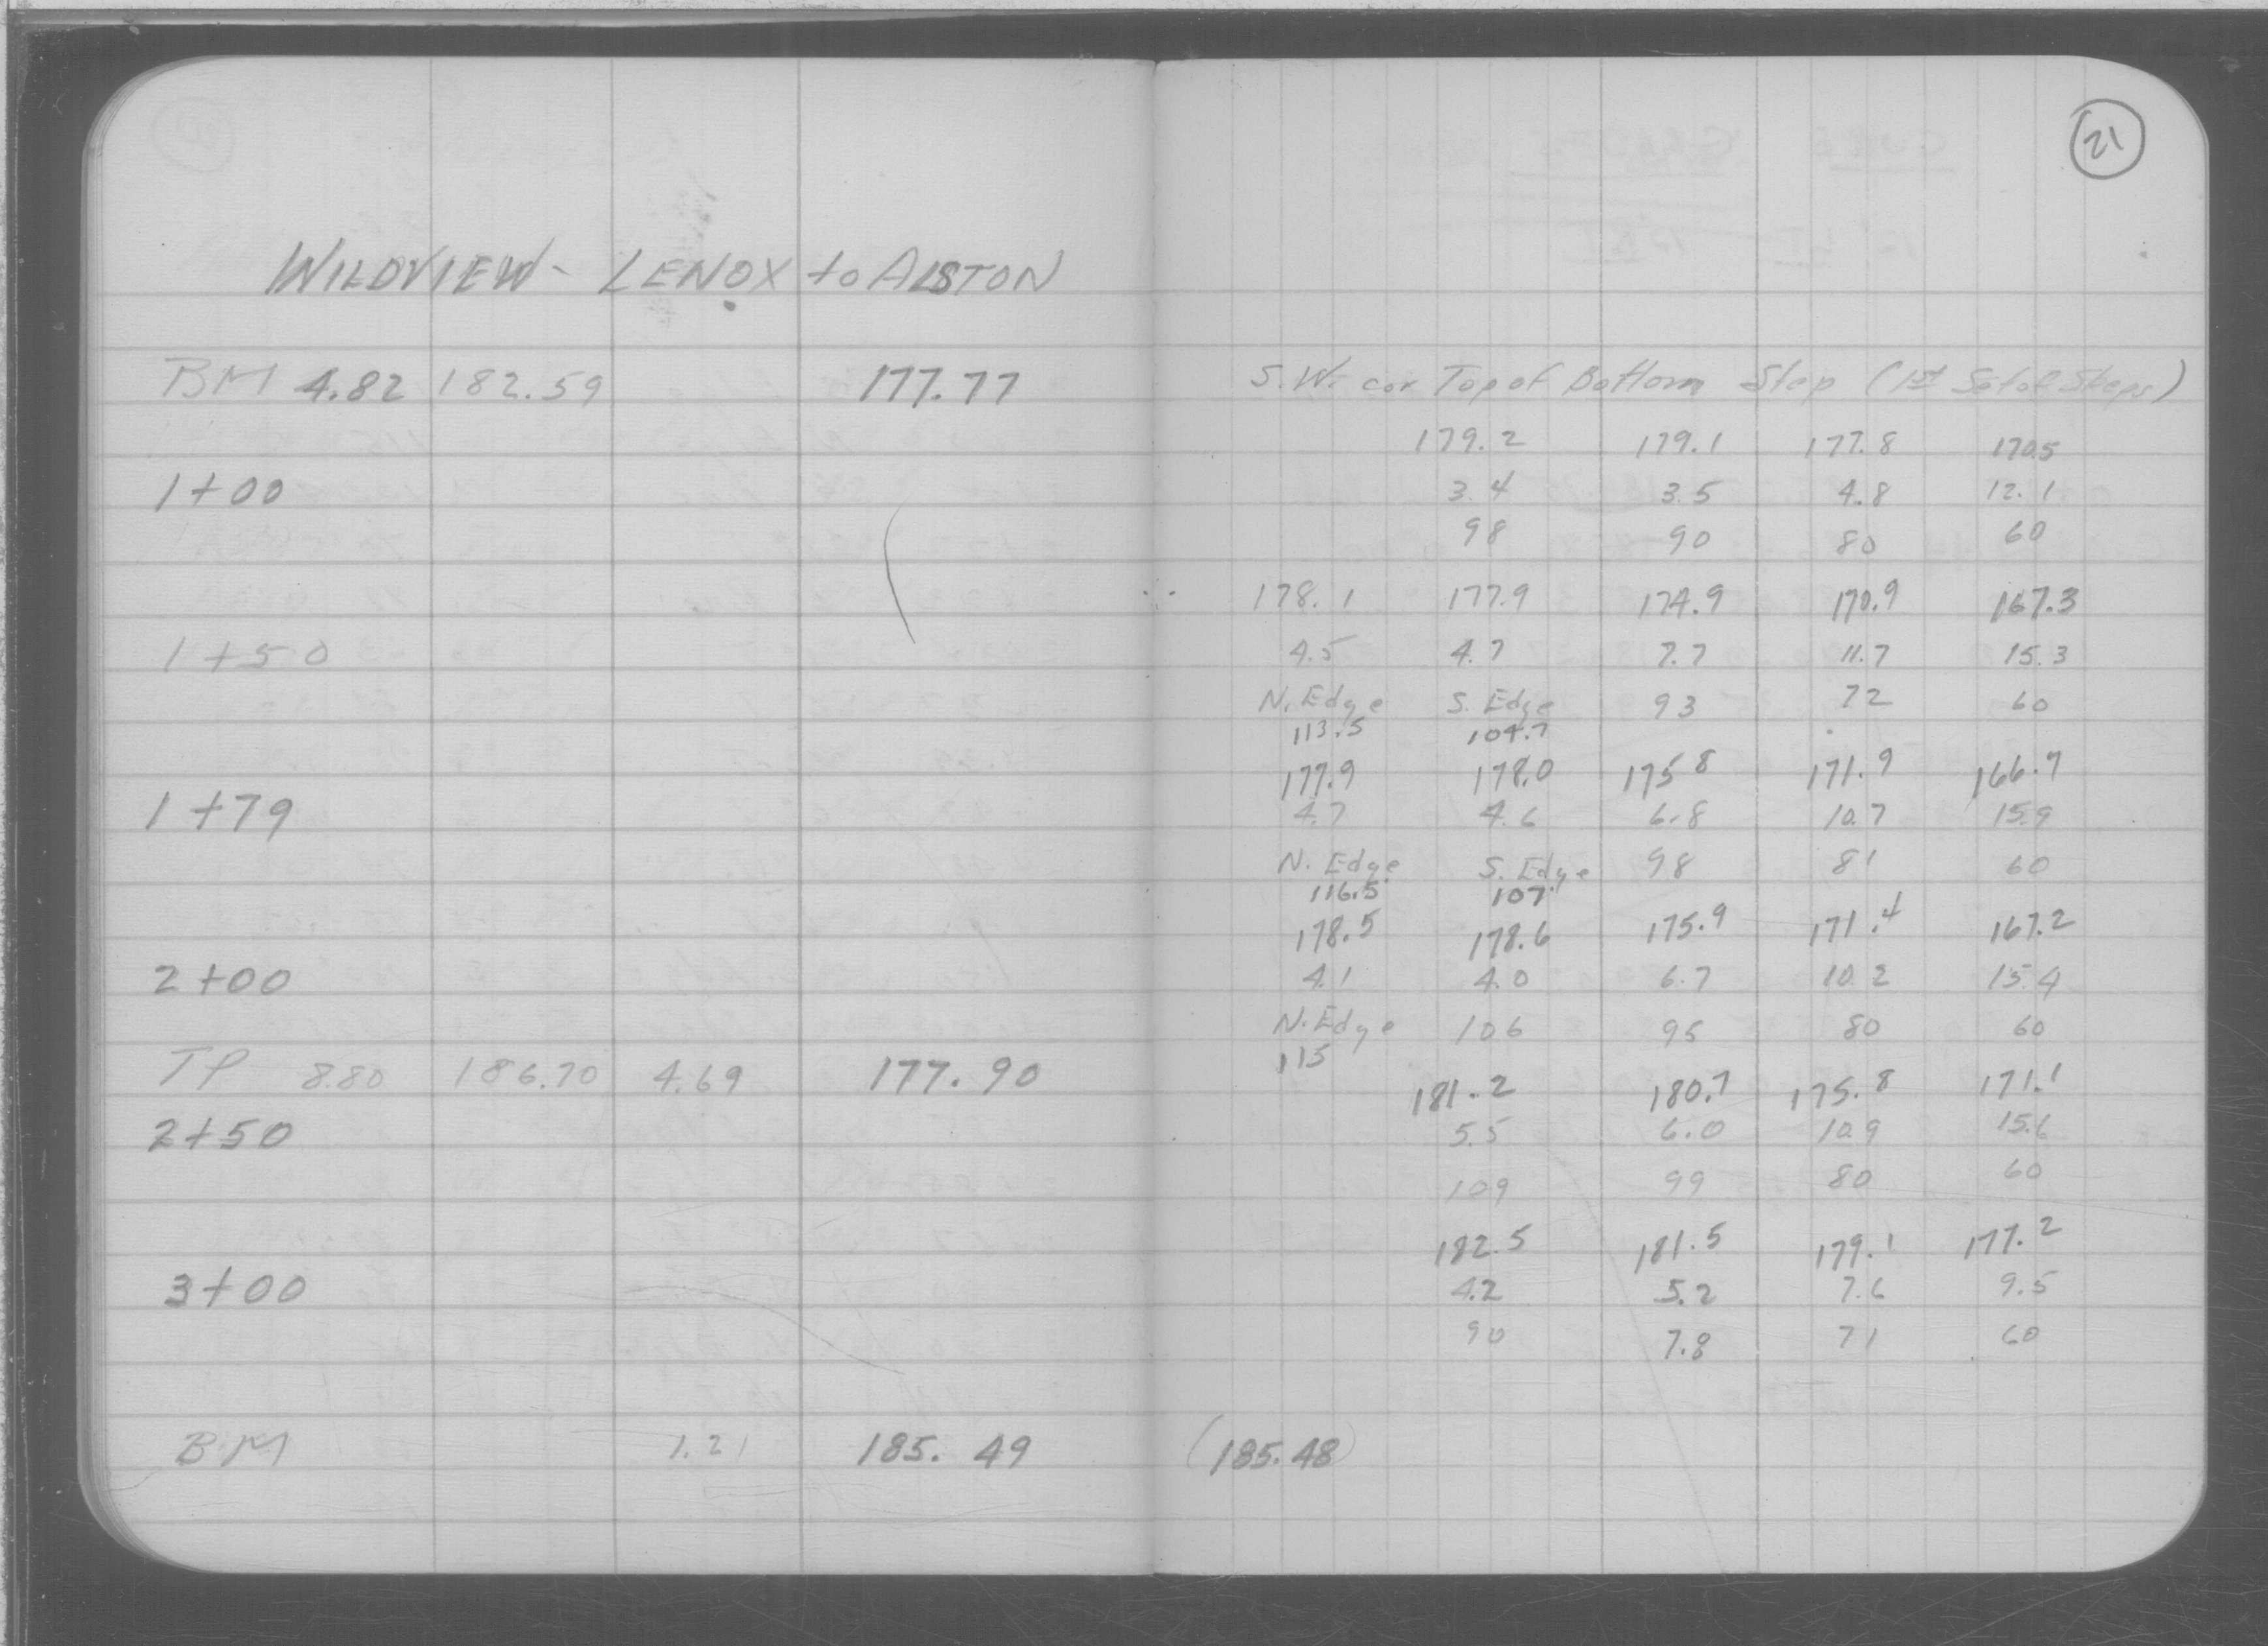 21
WILDVIEW - LENOX to ALSTON
BM 4.82 182.59 177.77 S.W. cor Top of Bottom Step (1st Set of Steps)
179.2 179.1 177.8 170.5
1+00 3.4 3.5 4.8 12.1
98 90 80 60
178.1 177.9 174.9 170.9 167.3
1+50 4.5 4.7 7.7 11.7 15.3
N. Edge S. Edge 93 72 60
113.5 104.7
177.9 178.0 175.8 171.9 166.7
1+79 4.7 4.6 6.8 10.7 15.9
N. Edge S. Edge 98 81 60
116.5 107
178.5 178.6 175.9 171.4 167.2
2+00 4.1 4.0 6.7 10.2 15.4
N. Edge 106 95 80 60
115
TP 8.80 186.70 4.69 177.90
181.2 180.7 175.8 171.1
2+50 5.5 6.0 10.9 15.6
109 99 80 60
182.5 181.5 179.1 177.2
3+00 4.2 5.2 7.6 9.5
90 7.8 71 60
BM 1.21 185.49 (185.48)